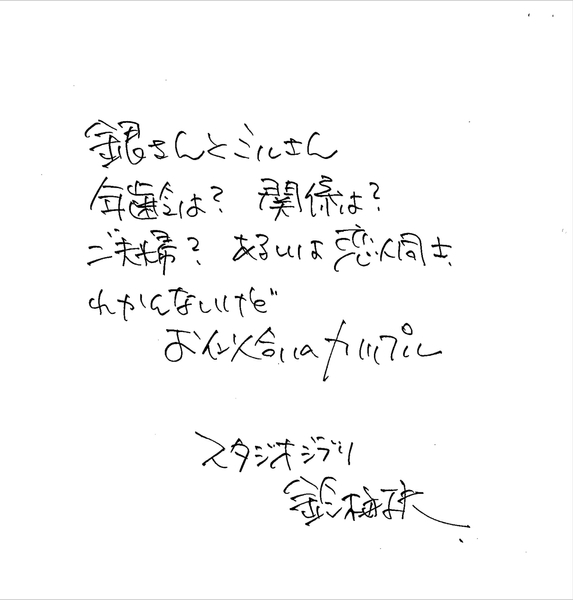 銀さんとミルさん
年齢は? 関係は?
ご夫婦? あるいは恋人同士
わかんないけど
お似合いのカップル
スタジオジブリ
鈴木敏夫